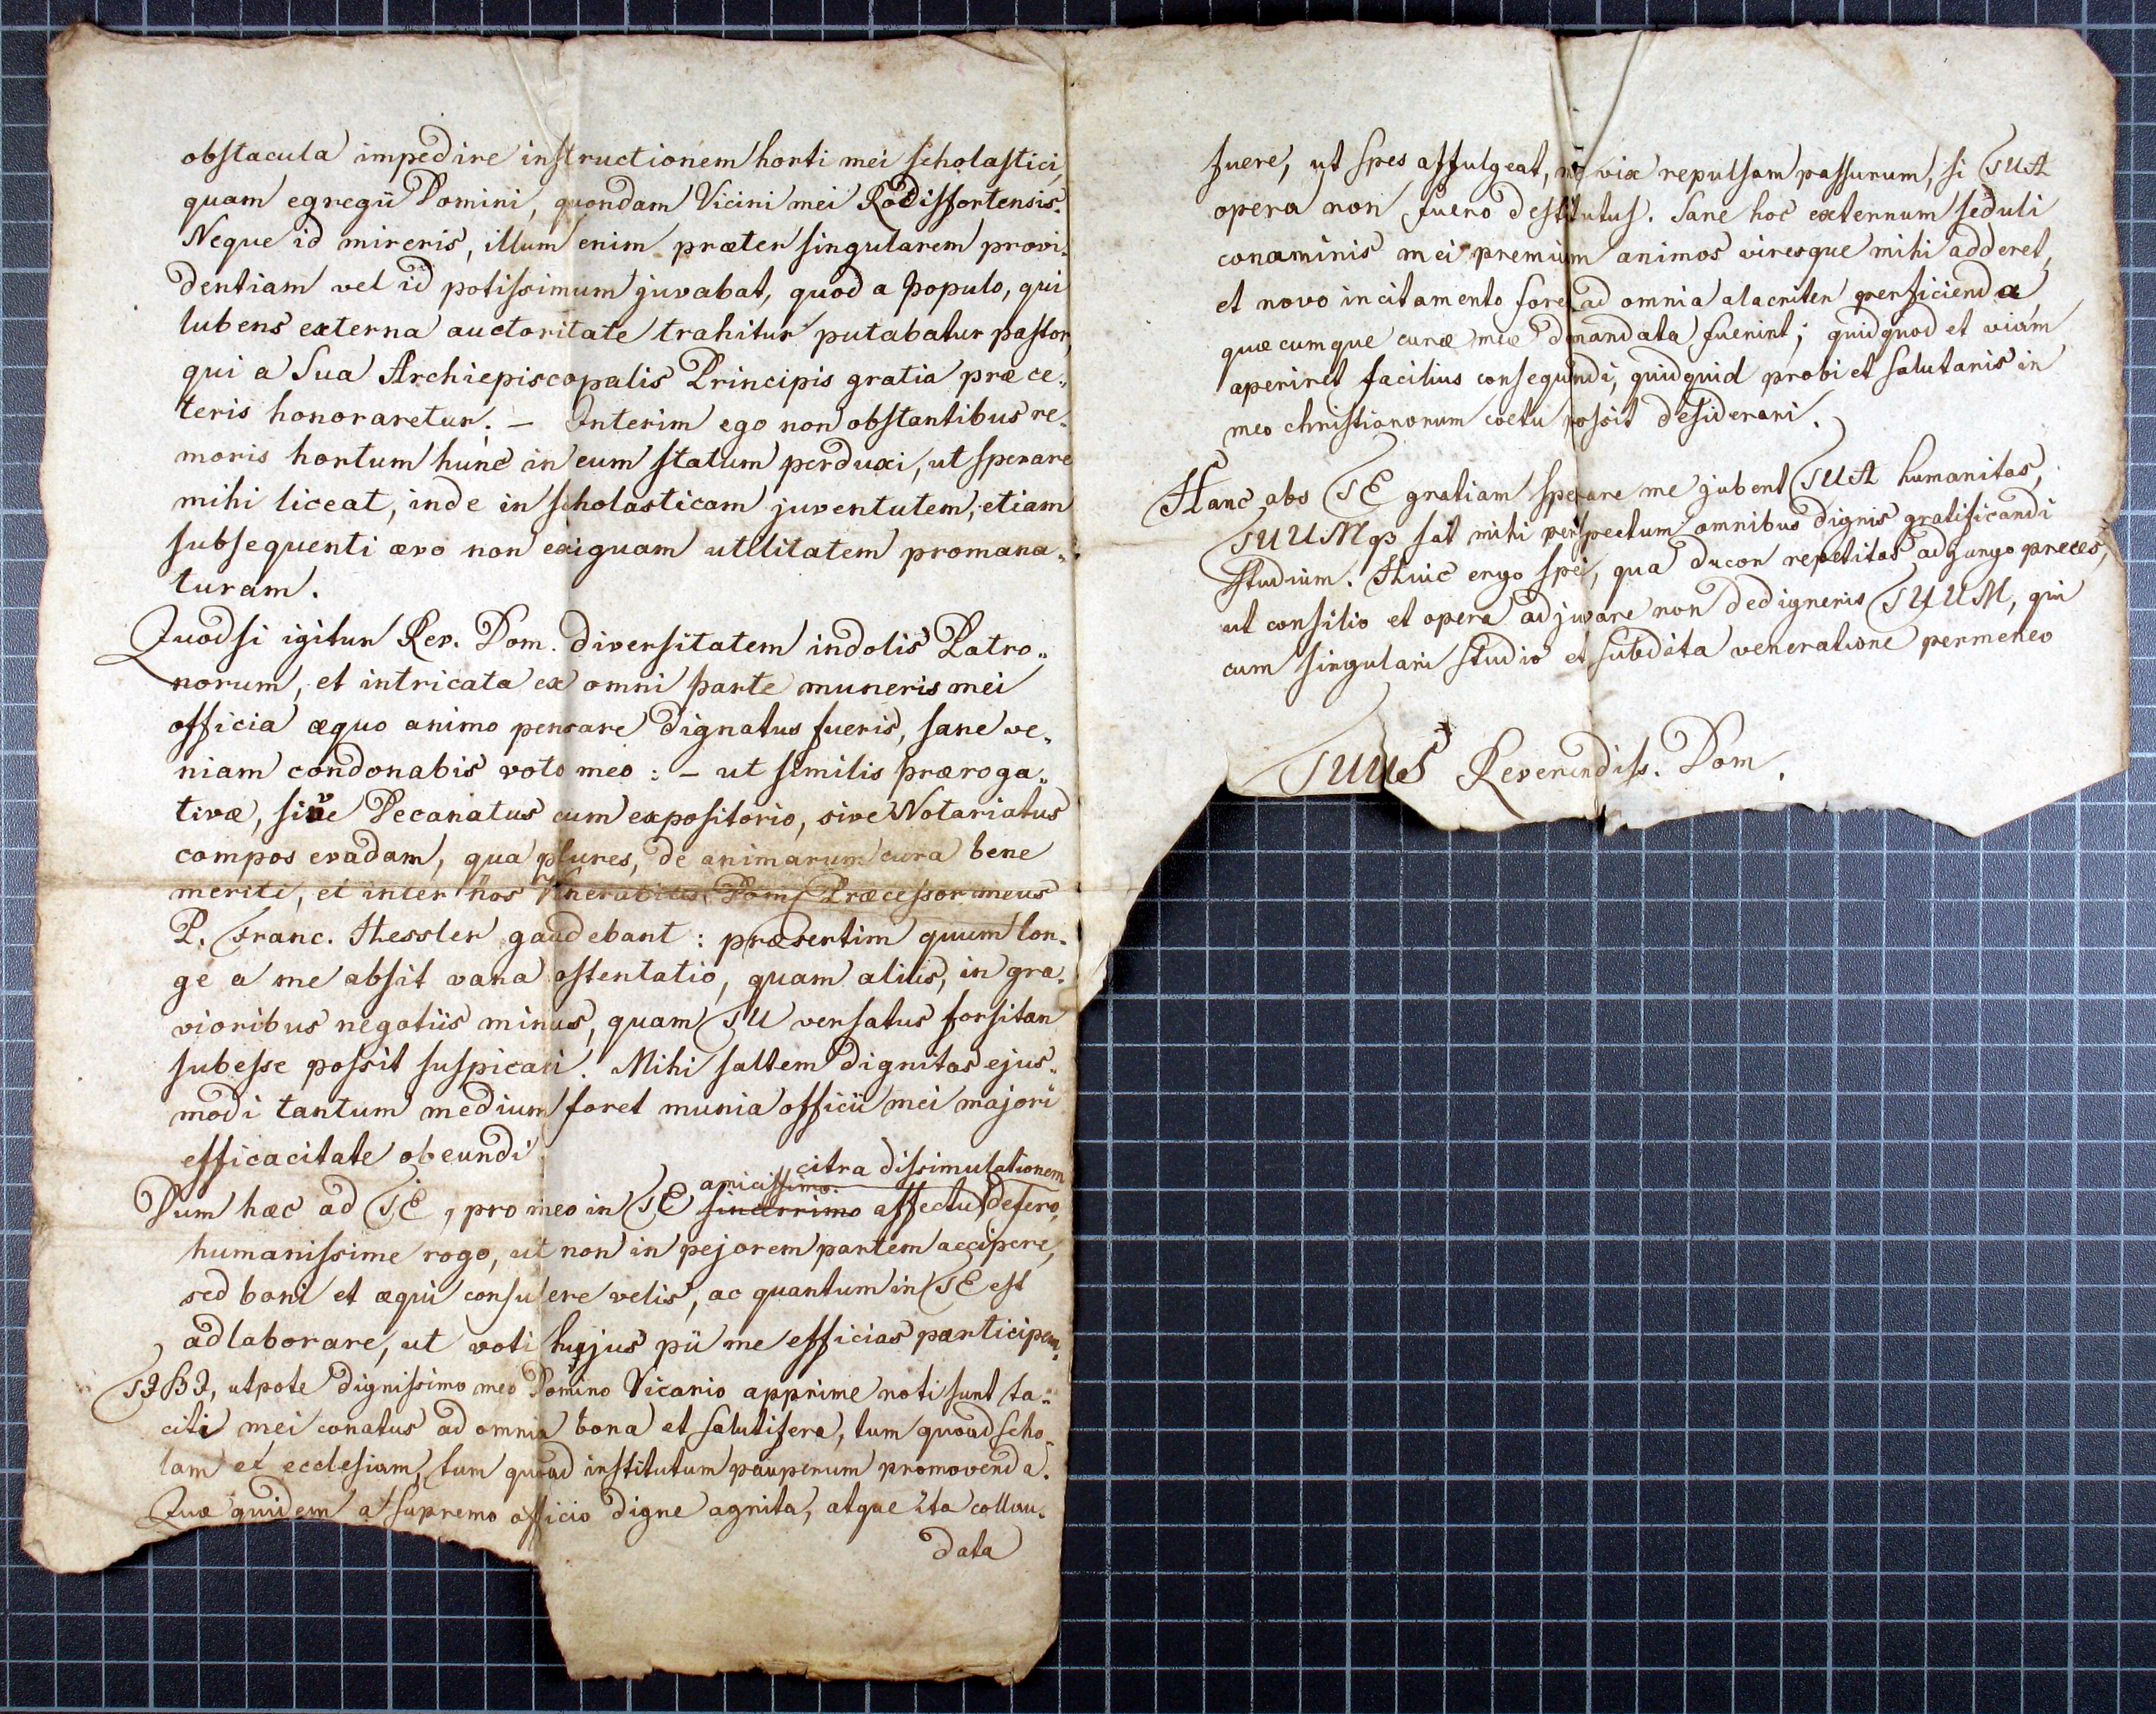 obstacula impedire instructionem horti mei scholastici,
quam egregii Domini, quondam Vicini mei Rodisfortensis.
Neque id mireris, illum enim præter singularem provi-
dentiam vel id potissimum juvabat, quod a populo, qui
lubens externa auctoritate trahitur putabatur pastor,
qui a Sua Archiepiscopalis Principis gratia præ ce„
teris honoraretur. – Interim ego non obstantibus re-
moris hortum hunc in eum statum perduxi, ut sperare
mihi liceat, inde in scholasticam juventutem, etiam
subsequenti ævo non exiguam utilitatem promana„
turam.
Quodsi igitur Rev. Dom. diversitatem indolis Patro„
norum, et intricata ex omni parte muneris mei
officia æquo animo pensare dignatus fueris, sane ve„
niam condonabis voto meo : – ut similis præroga„
tivæ, sive Decanatus cum expositorio, sive Notariatus
compos evadam, qua plures, de animarum cura bene
meriti, et inter hos Venerabilis Dom. Præcessor meus
P. Franc. Hessler gaudebant : præsertim quum lon-
ge a me absit vana ostentatio, quam aliis, in gra-
vioribus negotiis minus, quam TU versatus forsitan
subesse possit suspicari. Mihi saltem dignitas ejus„
modi tantum medium foret munia officii mei majori
efficacitate obeundi.
amicissimo citra dissimulationem
Dum hæc ad TE, pro meo in TE sincerrimo affectu defero,
humanissime rogo, ut non in pejorem partem accipere,
sed boni et æqui consulere velis, ac quantum in TE est
adlaborare, ut voti hujus pii me efficias participem.
TIBI, utpote dignissimo meo Domino Vicario apprime noti sunt ta„
citi mei conatus ad omnia bona et salutifera, tum quoad scho
lam et ecclesiam, tum quoad institutum pauperum promovenda.
Quæ quidem a supremo officio digne agnita, atque ita collau-
data
fuere, ut spes affulgeat, vix repulsam passurum, si TUA
opera non fuero destitutus. Sane hoc externum seduli
conaminis mei premium animos viresque mihi adderet,
et novo incitamento foret ad omnia alacriter perficienda
quæcumque curæ meæ demandata fuerint; quidquod et viam
aperiret facilius consequendi, quidquid probi et salutaris in
meo christianorum coetu possit desiderari.
Hanc abs TE gratiam sperare me jubent TUA humanitas,
TUUMqꝫ sat mihi perspectum omnibus dignis gratificandi
studium. Huic ergo spei, qua ducor repetitas adjungo preces,
ut consilio et opera adjuvare non dedigneris TUUM, qui
cum singulari studio et subdita veneratione permaneo
TUUS Reverendiss. Dom.